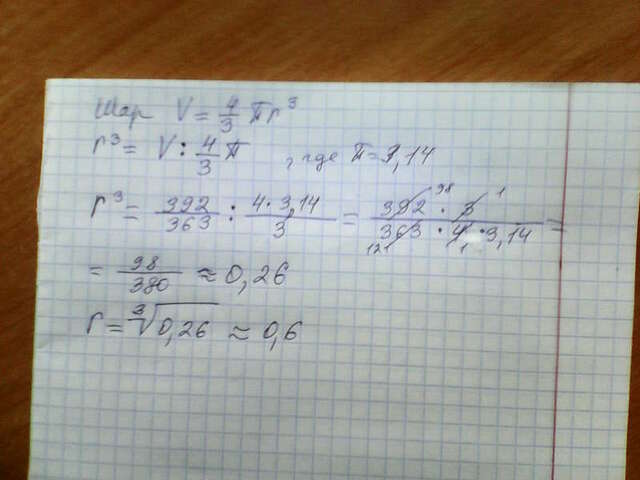 Шар V = 4/3 πr³
r³ = V : 4/3 π , где π = 3,14
r³ = 392/363 : 4·3,14/3 = 392 98 · 3 1 / 363 121 · 4 1 · 3,14 =
= 98/380 ≈ 0,26
r = ∛0,26 ≈ 0,6